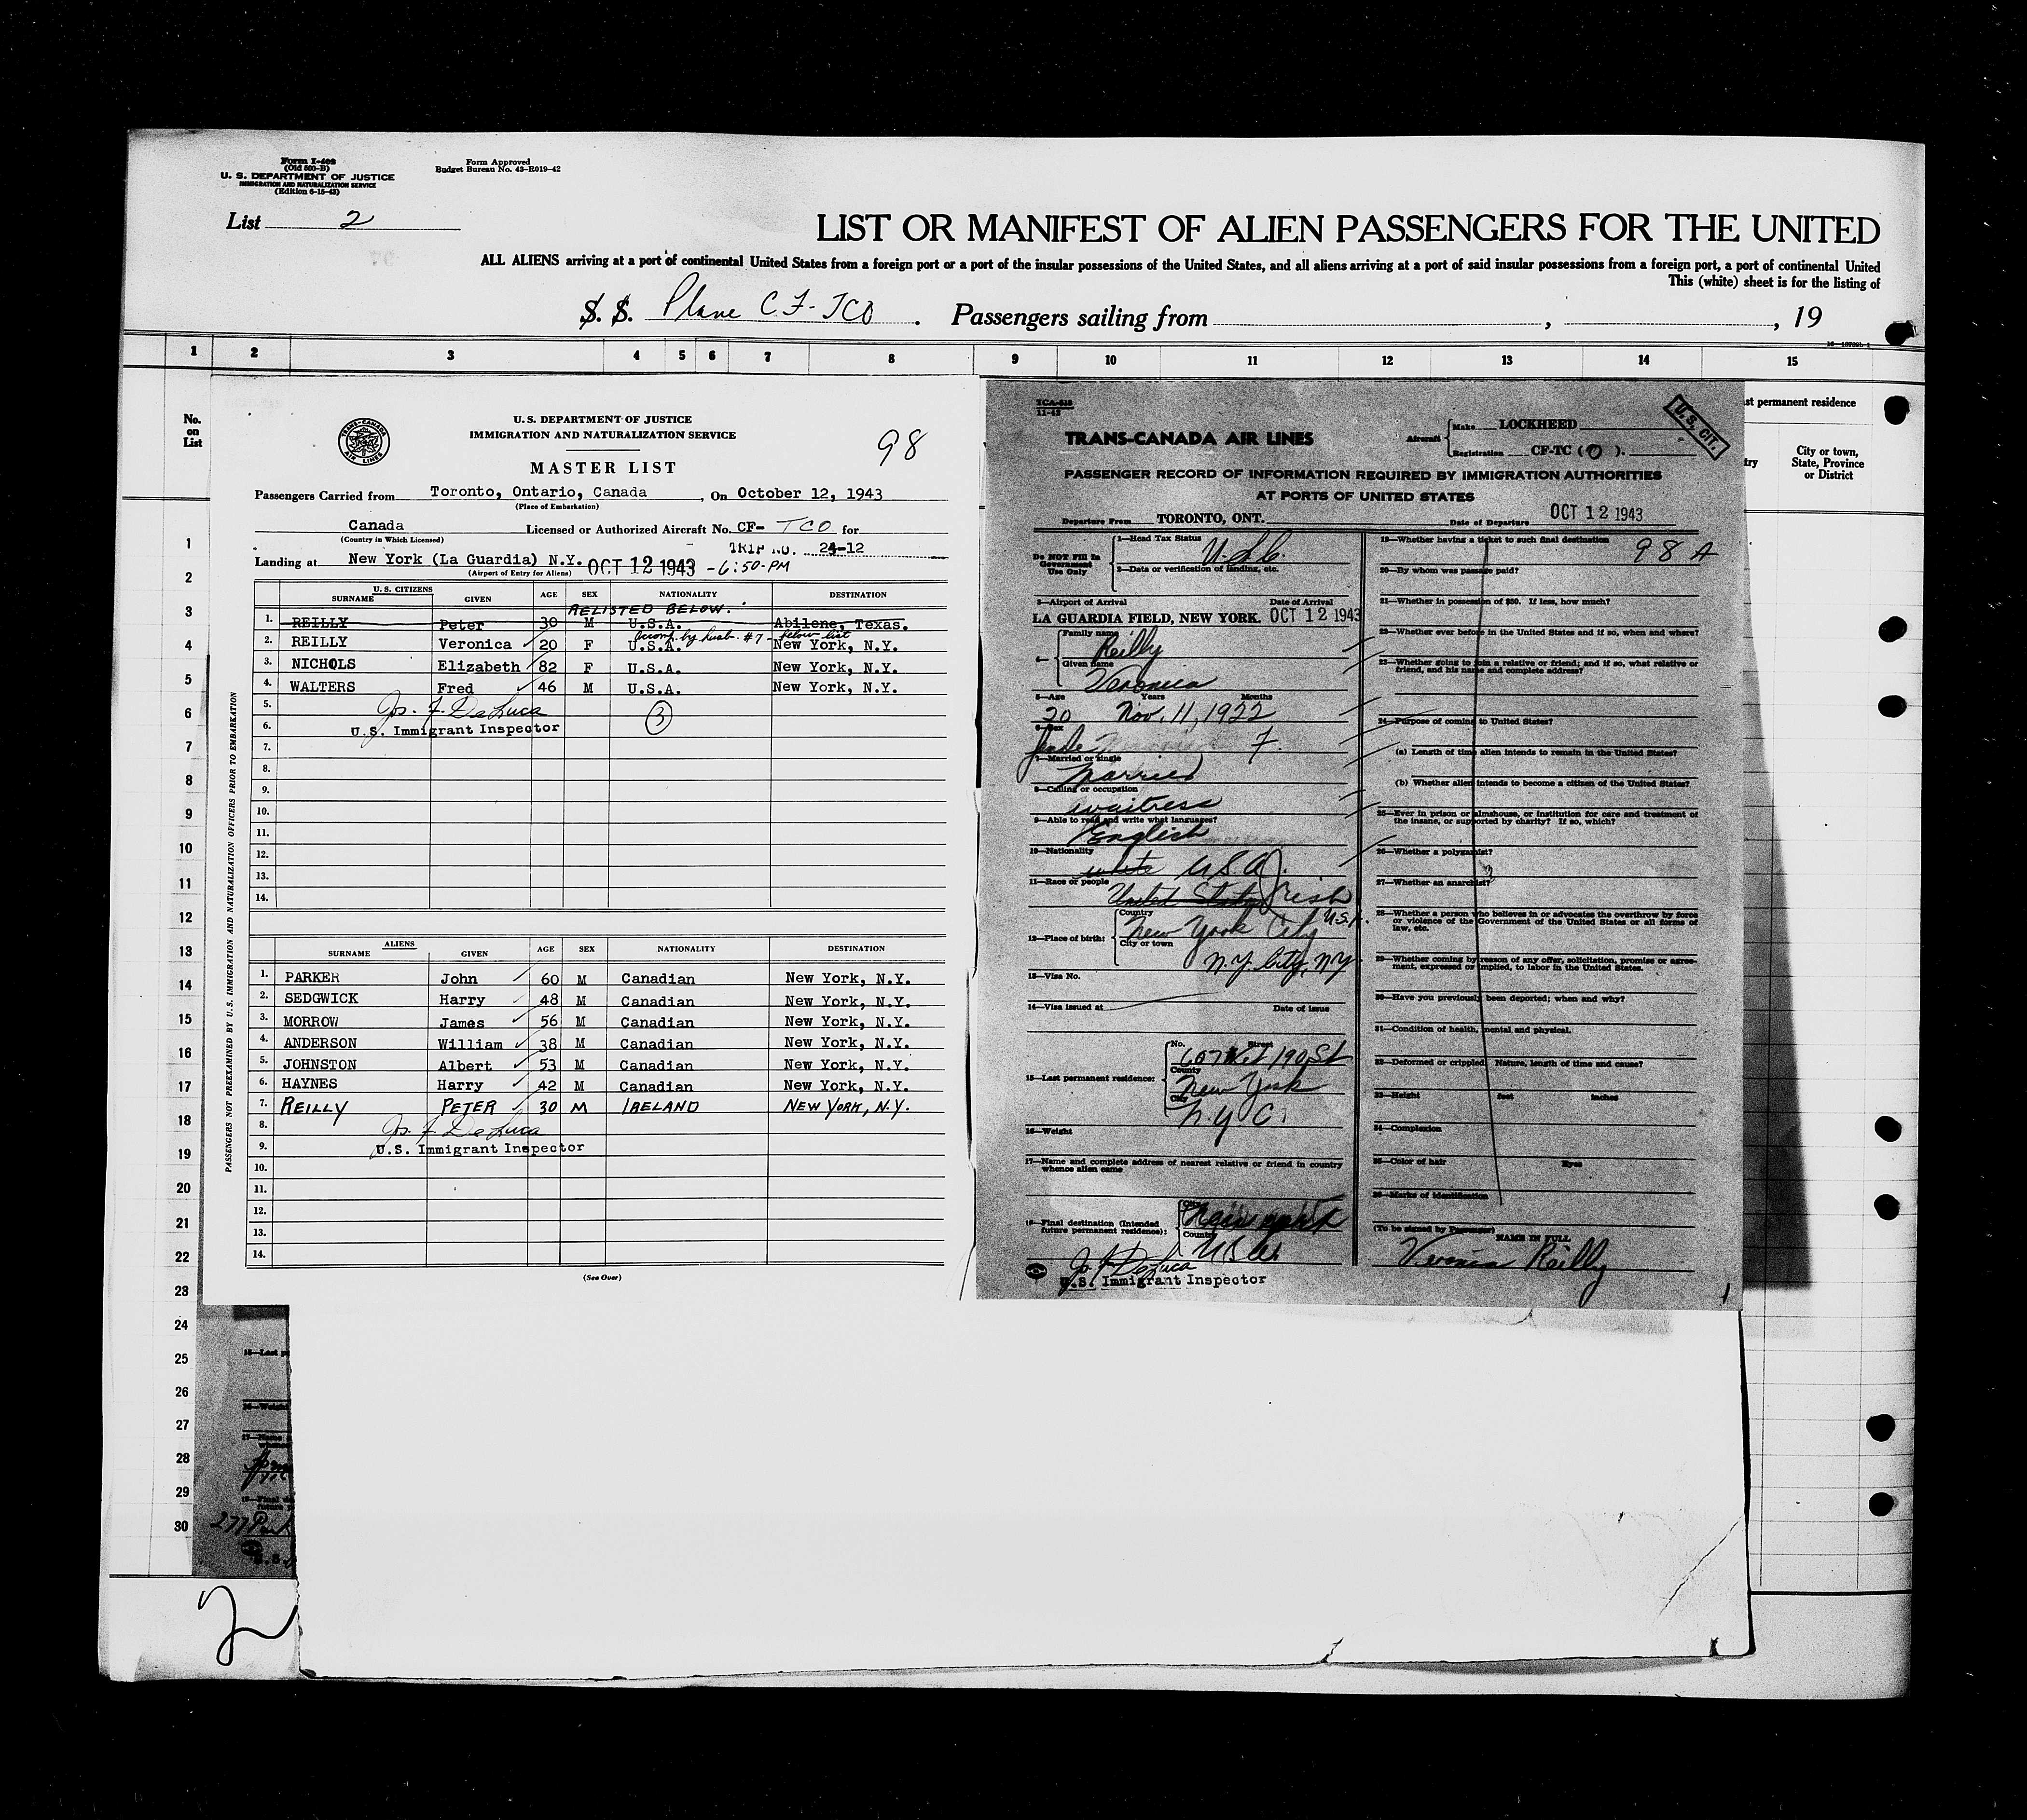 Form I-402
(Old 500-B)
U. S. DEPARTMENT OF JUSTICE
IMMIGRATION AND NATURALIZATION SERVICE
(Edition 6-15-43)
Form Approved
Budget Bureau No. 43-R019-42
List 2
LIST OR MANIFEST OF ALIEN PASSENGERS FOR THE UNITED
ALL ALIENS arriving at a port of continental United States from a foreign port or a port of the insular possessions of the United States, and all aliens arriving at a port of said insular possessions from a foreign port, a port of continental United
This (white) sheet is for the listing of
S. S. Plane CF-TCO . Passengers sailing from , , 19
1 2 3 4 5 6 7 8 9 10 11 12 13 14 15
No.
on
List
st permanent residence
try
City or town,
State, Province
or District
1
2
3
4
5
6
7
8
9
10
11
12
13
14
15
16
17
18
19
20
21
22
23
24
25
26
27
28
29
30
2
TRANS-CANADA AIR LINES
U. S. DEPARTMENT OF JUSTICE
IMMIGRATION AND NATURALIZATION SERVICE
98
MASTER LIST
Passengers Carried from Toronto, Ontario, Canada , On October 12, 1943
(Place of Embarkation)
Canada Licensed or Authorized Aircraft No. CF- TCO for
(Country in Which Licensed)
TRIP NO. 24-12
Landing at New York (La Guardia) N.Y. OCT 12 1943 - 6:50-PM
(Airport of Entry for Aliens)
U. S. CITIZENS
SURNAME GIVEN AGE SEX NATIONALITY DESTINATION
RELISTED BELOW.
1. REILLY Peter 30 M U.S.A. Abilene, Texas.
Accomp. by husb. #7 - below list
2. REILLY Veronica 20 F U.S.A. New York, N.Y.
3. NICHOLS Elizabeth 82 F U.S.A. New York, N.Y.
4. WALTERS Fred 46 M U.S.A. New York, N.Y.
5. Jos. F. DeLuca 3
6. U.S. Immigrant Inspector
7.
8.
9.
10.
11.
12.
13.
14.
PASSENGERS NOT PREEXAMINED BY U.S. IMMIGRATION AND NATURALIZATION OFFICERS PRIOR TO EMBARKATION
ALIENS
SURNAME GIVEN AGE SEX NATIONALITY DESTINATION
1. PARKER John 60 M Canadian New York, N.Y.
2. SEDGWICK Harry 48 M Canadian New York, N.Y.
3. MORROW James 56 M Canadian New York, N.Y.
4. ANDERSON William 38 M Canadian New York, N.Y.
5. JOHNSTON Albert 53 M Canadian New York, N.Y.
6. HAYNES Harry 42 M Canadian New York, N.Y.
7. REILLY PETER 30 M IRELAND NEW YORK, N.Y.
8. Jos. F. DeLuca
9. U.S. Immigrant Inspector
10.
11.
12.
13.
14.
(See Over)
11-42
TRANS-CANADA AIR LINES
Aircraft Make LOCKHEED
Registration CF-TC ( O ).
U.S. CIT.
PASSENGER RECORD OF INFORMATION REQUIRED BY IMMIGRATION AUTHORITIES
AT PORTS OF UNITED STATES
Departure From TORONTO, ONT. Date of Departure OCT 12 1943
Do NOT Fill In
Government
Use Only
1—Head Tax Status
2—Data or verification of landing, etc.
3—Airport of Arrival Date of Arrival
LA GUARDIA FIELD, NEW YORK. OCT 12 1943
4— Family name Reilly
Given name Veronica
5—Age Years Months
20 Nov. 11, 1922
6—Sex F.
7—Married or single
Married
8—Calling or occupation
waitress
9—Able to read and write what languages?
English
10—Nationality
white U.S.A.
11—Race or people
United States Irish
12—Place of birth: Country New York City U.S.A.
City or town N.Y. City, NY
13—Visa No.
14—Visa issued at Date of issue
15—Last permanent residence: No. Street 607 West 190 St
County New York
City N.Y.C.
16—Weight
17—Name and complete address of nearest relative or friend in country
whence alien came
18—Final destination (Intended
future permanent residence): City New York
Country
Jos. F. DeLuca
U.S. Immigrant Inspector
19—Whether having a ticket to such final destination 98 A
20—By whom was passage paid?
21—Whether in possession of $50. If less, how much?
22—Whether ever before in the United States and if so, when and where?
23—Whether going to join a relative or friend; and if so, what relative or
friend, and his name and complete address?
24—Purpose of coming to United States?
(a) Length of time alien intends to remain in the United States?
(b) Whether alien intends to become a citizen of the United States?
25—Ever in prison or almshouse, or institution for care and treatment of
the insane, or supported by charity? If so, which?
26—Whether a polygamist?
27—Whether an anarchist?
28—Whether a person who believes in or advocates the overthrow by force
or violence of the Government of the United States or all forms of
law, etc.
29—Whether coming by reason of any offer, solicitation, promise or agree-
ment, expressed or implied, to labor in the United States.
30—Have you previously been deported; when and why?
31—Condition of health, mental and physical.
32—Deformed or crippled. Nature, length of time and cause?
33—Height feet inches
34—Complexion
35—Color of hair Eyes
36—Marks of identification
(To be signed by Passenger)
NAME IN FULL
Veronica Reilly
1